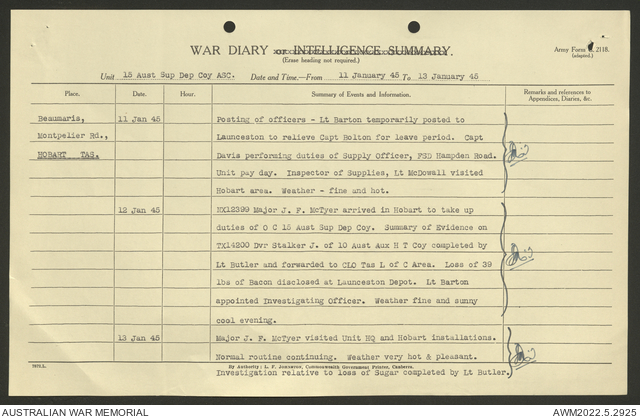 WAR DIARY or INTELLIGENCE SUMMARY.
(Erase heading not required.)
Army Form C. 2118.
(adapted.)
Unit 15 Aust Sup Dep Coy ASC. Date and Time.—From 11 January 45 To 13 January 45
Place. Date. Hour. Summary of Events and Information. Remarks and references to Appendices, Diaries, &c.
Beaumaris, 11 Jan 45 Posting of officers - Lt Barton temporarily posted to
Montpelier Rd., Launceston to relieve Capt Bolton for leave period. Capt
HOBART TAS. Davis performing duties of Supply Officer, FSD Hampden Road.
Unit pay day. Inspector of Supplies, Lt McDowall visited
Hobart area. Weather - fine and hot.
12 Jan 45 NX12399 Major J. F. McTyer arrived in Hobart to take up
duties of O C 15 Aust Sup Dep Coy. Summary of Evidence on
TX14200 Dvr Stalker J. of 10 Aust Aux H T Coy completed by
Lt Butler and forwarded to CLO Tas L of C Area. Loss of 39
lbs of Bacon disclosed at Launceston Depot. Lt Barton
appointed Investigating Officer. Weather fine and sunny
cool evening.
13 Jan 45 Major J. F. McTyer visited Unit HQ and Hobart installations.
Normal routine continuing. Weather very hot & pleasant.
By Authority: L. F. Johnston, Commonwealth Government Printer, Canberra.
Investigation relative to loss of Sugar completed by Lt Butler.
AUSTRALIAN WAR MEMORIAL
AWM2022.5.2925